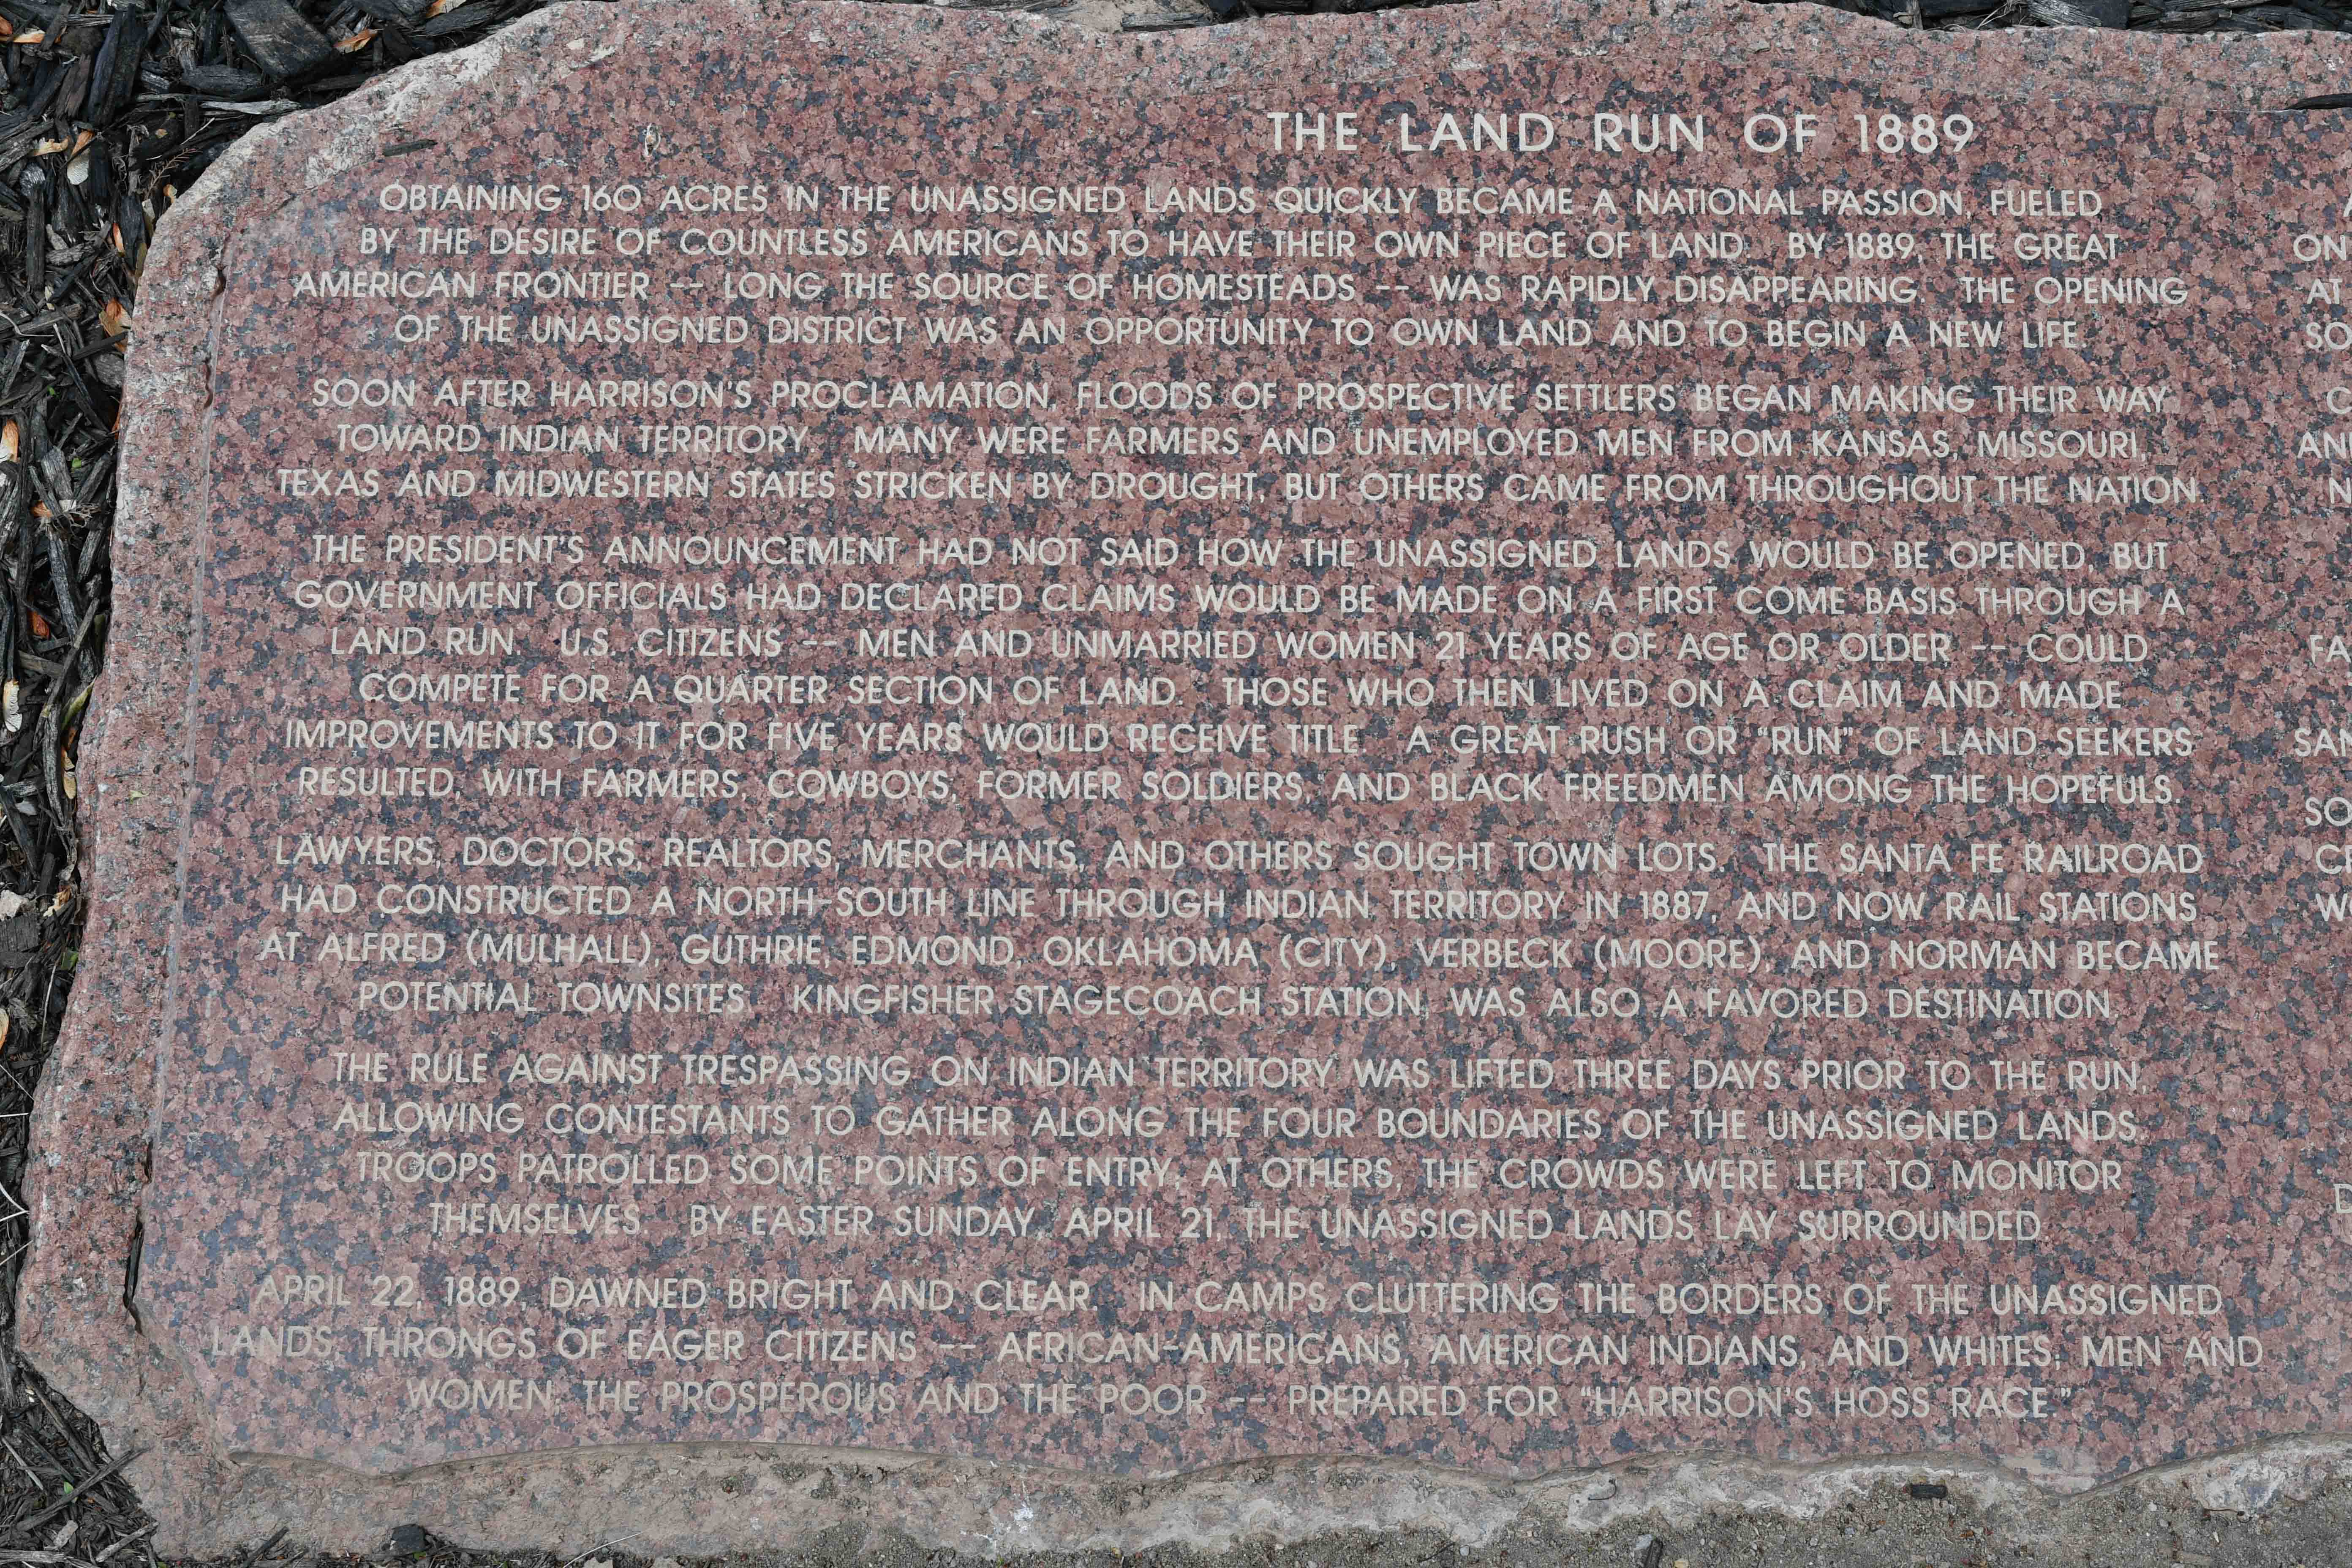 THE LAND RUN OF 1889
OBTAINING 160 ACRES IN THE UNASSIGNED LANDS QUICKLY BECAME A NATIONAL PASSION, FUELED
BY THE DESIRE OF COUNTLESS AMERICANS TO HAVE THEIR OWN PIECE OF LAND. BY 1889, THE GREAT
AMERICAN FRONTIER -- LONG THE SOURCE OF HOMESTEADS -- WAS RAPIDLY DISAPPEARING. THE OPENING
OF THE UNASSIGNED DISTRICT WAS AN OPPORTUNITY TO OWN LAND AND TO BEGIN A NEW LIFE.
SOON AFTER HARRISON'S PROCLAMATION, FLOODS OF PROSPECTIVE SETTLERS BEGAN MAKING THEIR WAY
TOWARD INDIAN TERRITORY. MANY WERE FARMERS AND UNEMPLOYED MEN FROM KANSAS, MISSOURI,
TEXAS AND MIDWESTERN STATES STRICKEN BY DROUGHT, BUT OTHERS CAME FROM THROUGHOUT THE NATION
THE PRESIDENT'S ANNOUNCEMENT HAD NOT SAID HOW THE UNASSIGNED LANDS WOULD BE OPENED, BUT
GOVERNMENT OFFICIALS HAD DECLARED CLAIMS WOULD BE MADE ON A FIRST COME BASIS THROUGH A
LAND RUN. U.S. CITIZENS -- MEN AND UNMARRIED WOMEN 21 YEARS OF AGE OR OLDER -- COULD
COMPETE FOR A QUARTER SECTION OF LAND. THOSE WHO THEN LIVED ON A CLAIM AND MADE
IMPROVEMENTS TO IT FOR FIVE YEARS WOULD RECEIVE TITLE. A GREAT RUSH OR "RUN" OF LAND SEEKERS
RESULTED, WITH FARMERS, COWBOYS, FORMER SOLDIERS, AND BLACK FREEDMEN AMONG THE HOPEFULS.
LAWYERS, DOCTORS, REALTORS, MERCHANTS, AND OTHERS SOUGHT TOWN LOTS. THE SANTA FE RAILROAD
HAD CONSTRUCTED A NORTH-SOUTH LINE THROUGH INDIAN TERRITORY IN 1887, AND NOW RAIL STATIONS
AT ALFRED (MULHALL), GUTHRIE, EDMOND, OKLAHOMA (CITY), VERBECK (MOORE), AND NORMAN BECAME
POTENTIAL TOWNSITES. KINGFISHER STAGECOACH STATION WAS ALSO A FAVORED DESTINATION.
THE RULE AGAINST TRESPASSING ON INDIAN TERRITORY WAS LIFTED THREE DAYS PRIOR TO THE RUN,
ALLOWING CONTESTANTS TO GATHER ALONG THE FOUR BOUNDARIES OF THE UNASSIGNED LANDS.
TROOPS PATROLLED SOME POINTS OF ENTRY; AT OTHERS, THE CROWDS WERE LEFT TO MONITOR
THEMSELVES. BY EASTER SUNDAY, APRIL 21, THE UNASSIGNED LANDS LAY SURROUNDED.
APRIL 22, 1889, DAWNED BRIGHT AND CLEAR. IN CAMPS CLUTTERING THE BORDERS OF THE UNASSIGNED
LANDS, THRONGS OF EAGER CITIZENS -- AFRICAN-AMERICANS, AMERICAN INDIANS, AND WHITES; MEN AND
WOMEN; THE PROSPEROUS AND THE POOR -- PREPARED FOR "HARRISON'S HOSS RACE."